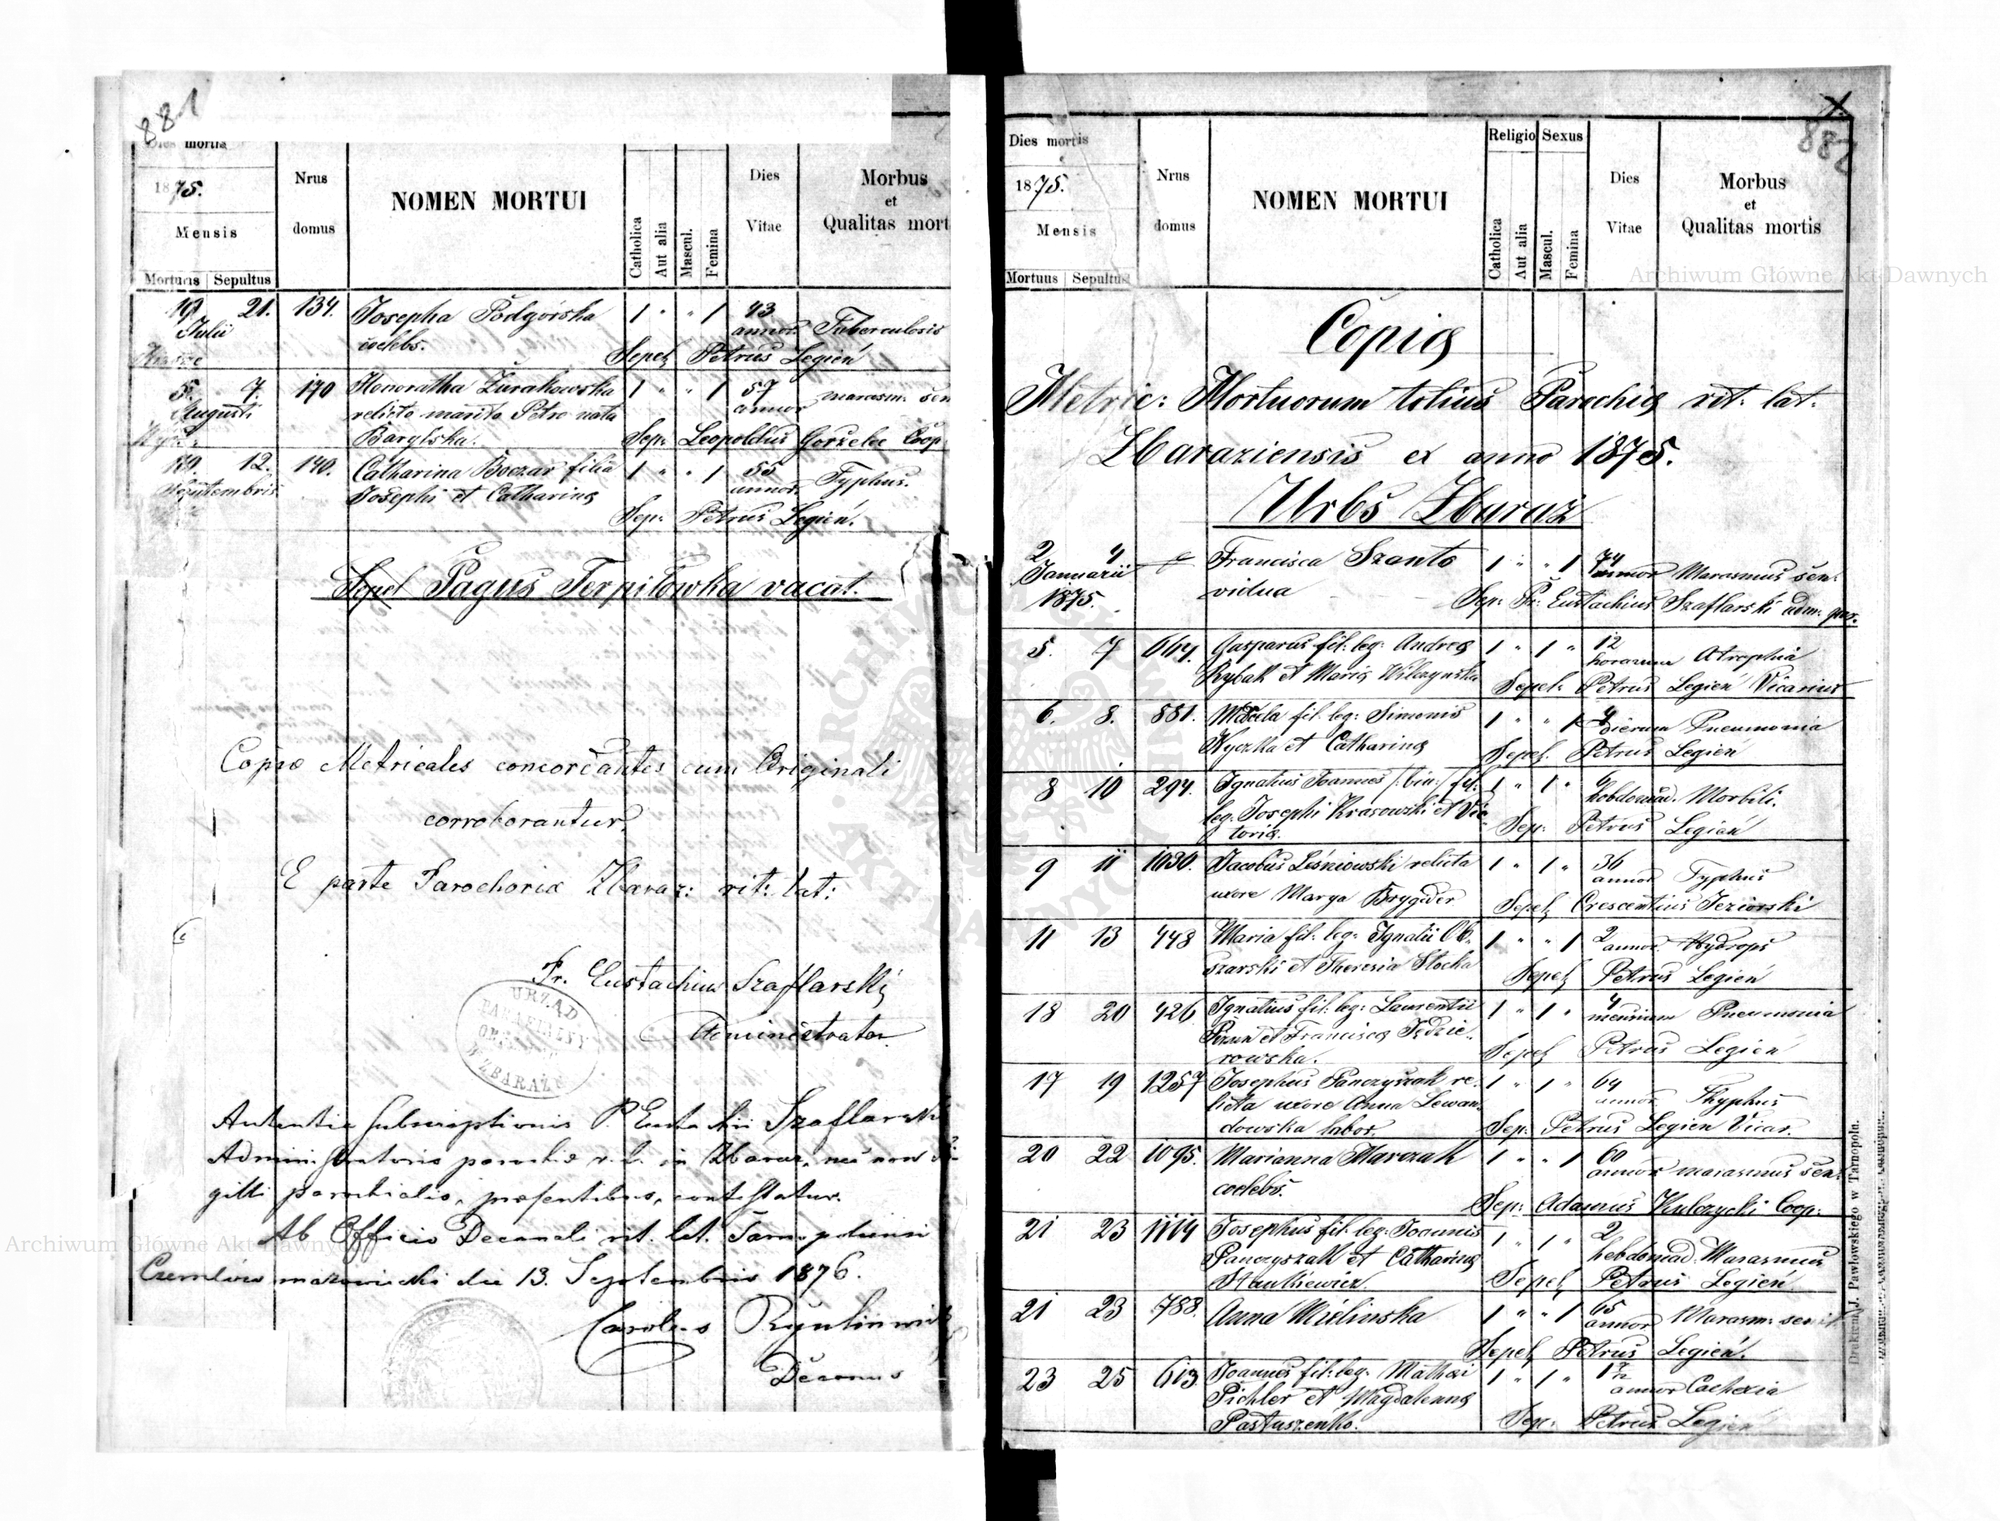 881
Dies mortis
1875.
Mensis
Mortuus Sepultus
Nrus domus
NOMEN MORTUI
Catholica
Aut alia
Mascul.
Femina
Dies Vitae
Morbus et Qualitas mort
19 21. 134. Josepha Podgórska 1 " " 1 43
Julii coelebs. annor. Tuberculosis
Sepel. Petrus Legień
5. 7. 170 Honoratha Żurakowska 1 " " 1 57 marasm. sen
Augusti relicta marito Petro nata annor
Barylska. Sep: Leopoldus Gorzelec Coop
12. 140. Catharina Boczar filia 1 " " 1 55 Typhus.
Septembris Josephi et Catharinę annor.
Sep: Petrus Legień.
Sepel Pagus Terpiłowka vacat.
Copiæ Metricales concordantes cum Originali
corroborantur.
E parte Parochoriæ Zbaraz: rit: lat:
Fr. Eustachius Szaflarski
Administrator.
URZĄD PARAFIALNY W ZBARAŻU
Subscriptionis P. Eustachii Szaflarski
Administratoris parochiæ r. l. in Zbaraz, nec non Si-
gilli parochialis, præsentibus, contestatur.
Ab Officio Decanali rit. lat. Tarnopoliensi
die 13. Septembris 1876.
Carolus
Decanus
882
Dies mortis
1875.
Mensis
Mortuus Sepultus
Nrus domus
NOMEN MORTUI
Religio Sexus
Catholica
Aut alia
Mascul.
Femina
Dies Vitae
Morbus et Qualitas mortis
Copię
Metric: Mortuorum totius Parochię rit: lat.
Zbaraziensis ex anno 1875.
Urbs Zbaraż
2 4 Francisca Szanto 1 " " 1 74
Januarii vidua annor Marasmus sen.
1875. Sep: Fr: Eustachius Szaflarski adm: par.
5. 7 664. Gasparus fil: leg: Andreę 1 " 1 " 12
Rybak et Marię Wilczynska horarum Atrophia
Sepel: Petrus Legień Vicarius
6. 8. 881. fil: leg: Simonis 1 " " 1 4
Hyczka et Catharinę dierum Pneumonia
Sepel. Petrus Legień
8 10 294. Ignatius Joannes /: bin :/ fil. 1 " 1 " 6
leg: Josephi Krasowski et Vic- hebdomad. Morbili.
torię. Sep: Petrus Legień
9 11 1030. Jacobus Leśniowski relicta 1 " 1 " 36
uxore Marya Brygider annor Typhus
Sepel. Crescentius Jeziorski
11 13 448 Maria fil: leg: Ignatii Ob- 1 " " 1 2
szarski et Theresia Stocka annor. Hydrops
Sepel Petrus Legień
18 20 426 Ignatius fil: leg: Laurentii 1 " 1 " 4
et Franciscę Jędzie- mensium Pneumonia
rowska. Sepel Petrus Legień
17 19 1257 Josephus Panczyszak re- 1 " 1 " 64
licta uxore Anna Lewan- annor Thyphus
dowska labor. Sep: Petrus Legień Vicar.
20 22 1095. Marianna Marczak 1 " " 1 60
coelebs. annor marasmus sen.
Sep: Adamus Kulczycki Coop:
21 23 1114 Josephus fil: leg: Joannis 1 " 1 " 2
Panczyszak et Catharinę hebdomad. Marasmus
Stankiewicz. Sepel Petrus Legień
21 23 788. Anna Mielinska 1 " " 1 65
annor Marasm: senil.
Sepel Petrus Legień.
23 25 613. Joannes fil: leg: Mathæi 1 " 1 " 1 1/2
Pichler et Magdalenę annor Cachexia
Pastuszenko. Sep: Petrus Legień
Drukiem J. Pawłowskiego w Tarnopolu.
Archiwum Główne Akt Dawnych
Archiwum Główne Akt Dawnych
ARCHIWUM GŁÓWNE AKT DAWNYCH